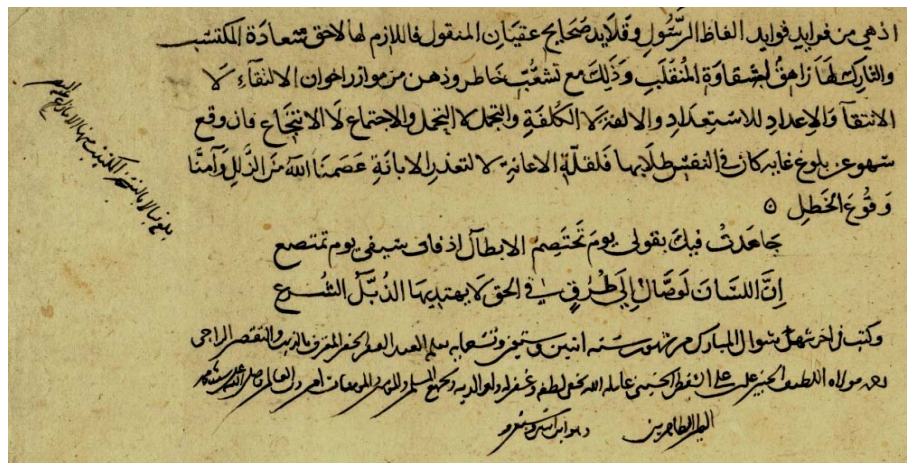 اذ هي من فرايد فوايد الفاظ الرسول وقلايد صحايح عقيان المنقول فاللازم لها لاحق سعادة المكتسب
والتارك لها زاهق لشقاوة المنقلب وذلك مع تشعب خاطر وذهن من موازر اخوان الالتقاء لا
الانتقاء والاعداد للاستعداد والالفة لا الكلفة والتجمل لا التحمل والاجتماع لا الانتجاع فان وقع
سهو عن بلوغ غاية كان في النفس طلابها فلقلة الاعانة لا لتعذر الابانة عصمنا الله من الزلل وآمننا
وقوع الخطل ه
جاهدت فيك بقولي يوم تختصم الابطال اذ فات سيفي يوم تمتصع
ان اللسان لوصال الى طرق في الحق لا يهتديها الذبل الشرع
وكتب في اخر شهر شوال المبارك من شهور سنه اثنين وستين وتسعمايه بقلم العبد الفقير الحقير المعترف بالذنب والتقصير الراجي
مولاه اللطيف الخبير علي بن الحسيني عامله الله بلطفه وغفر له ولوالديه ولجميع المسلمين
الطاهرين